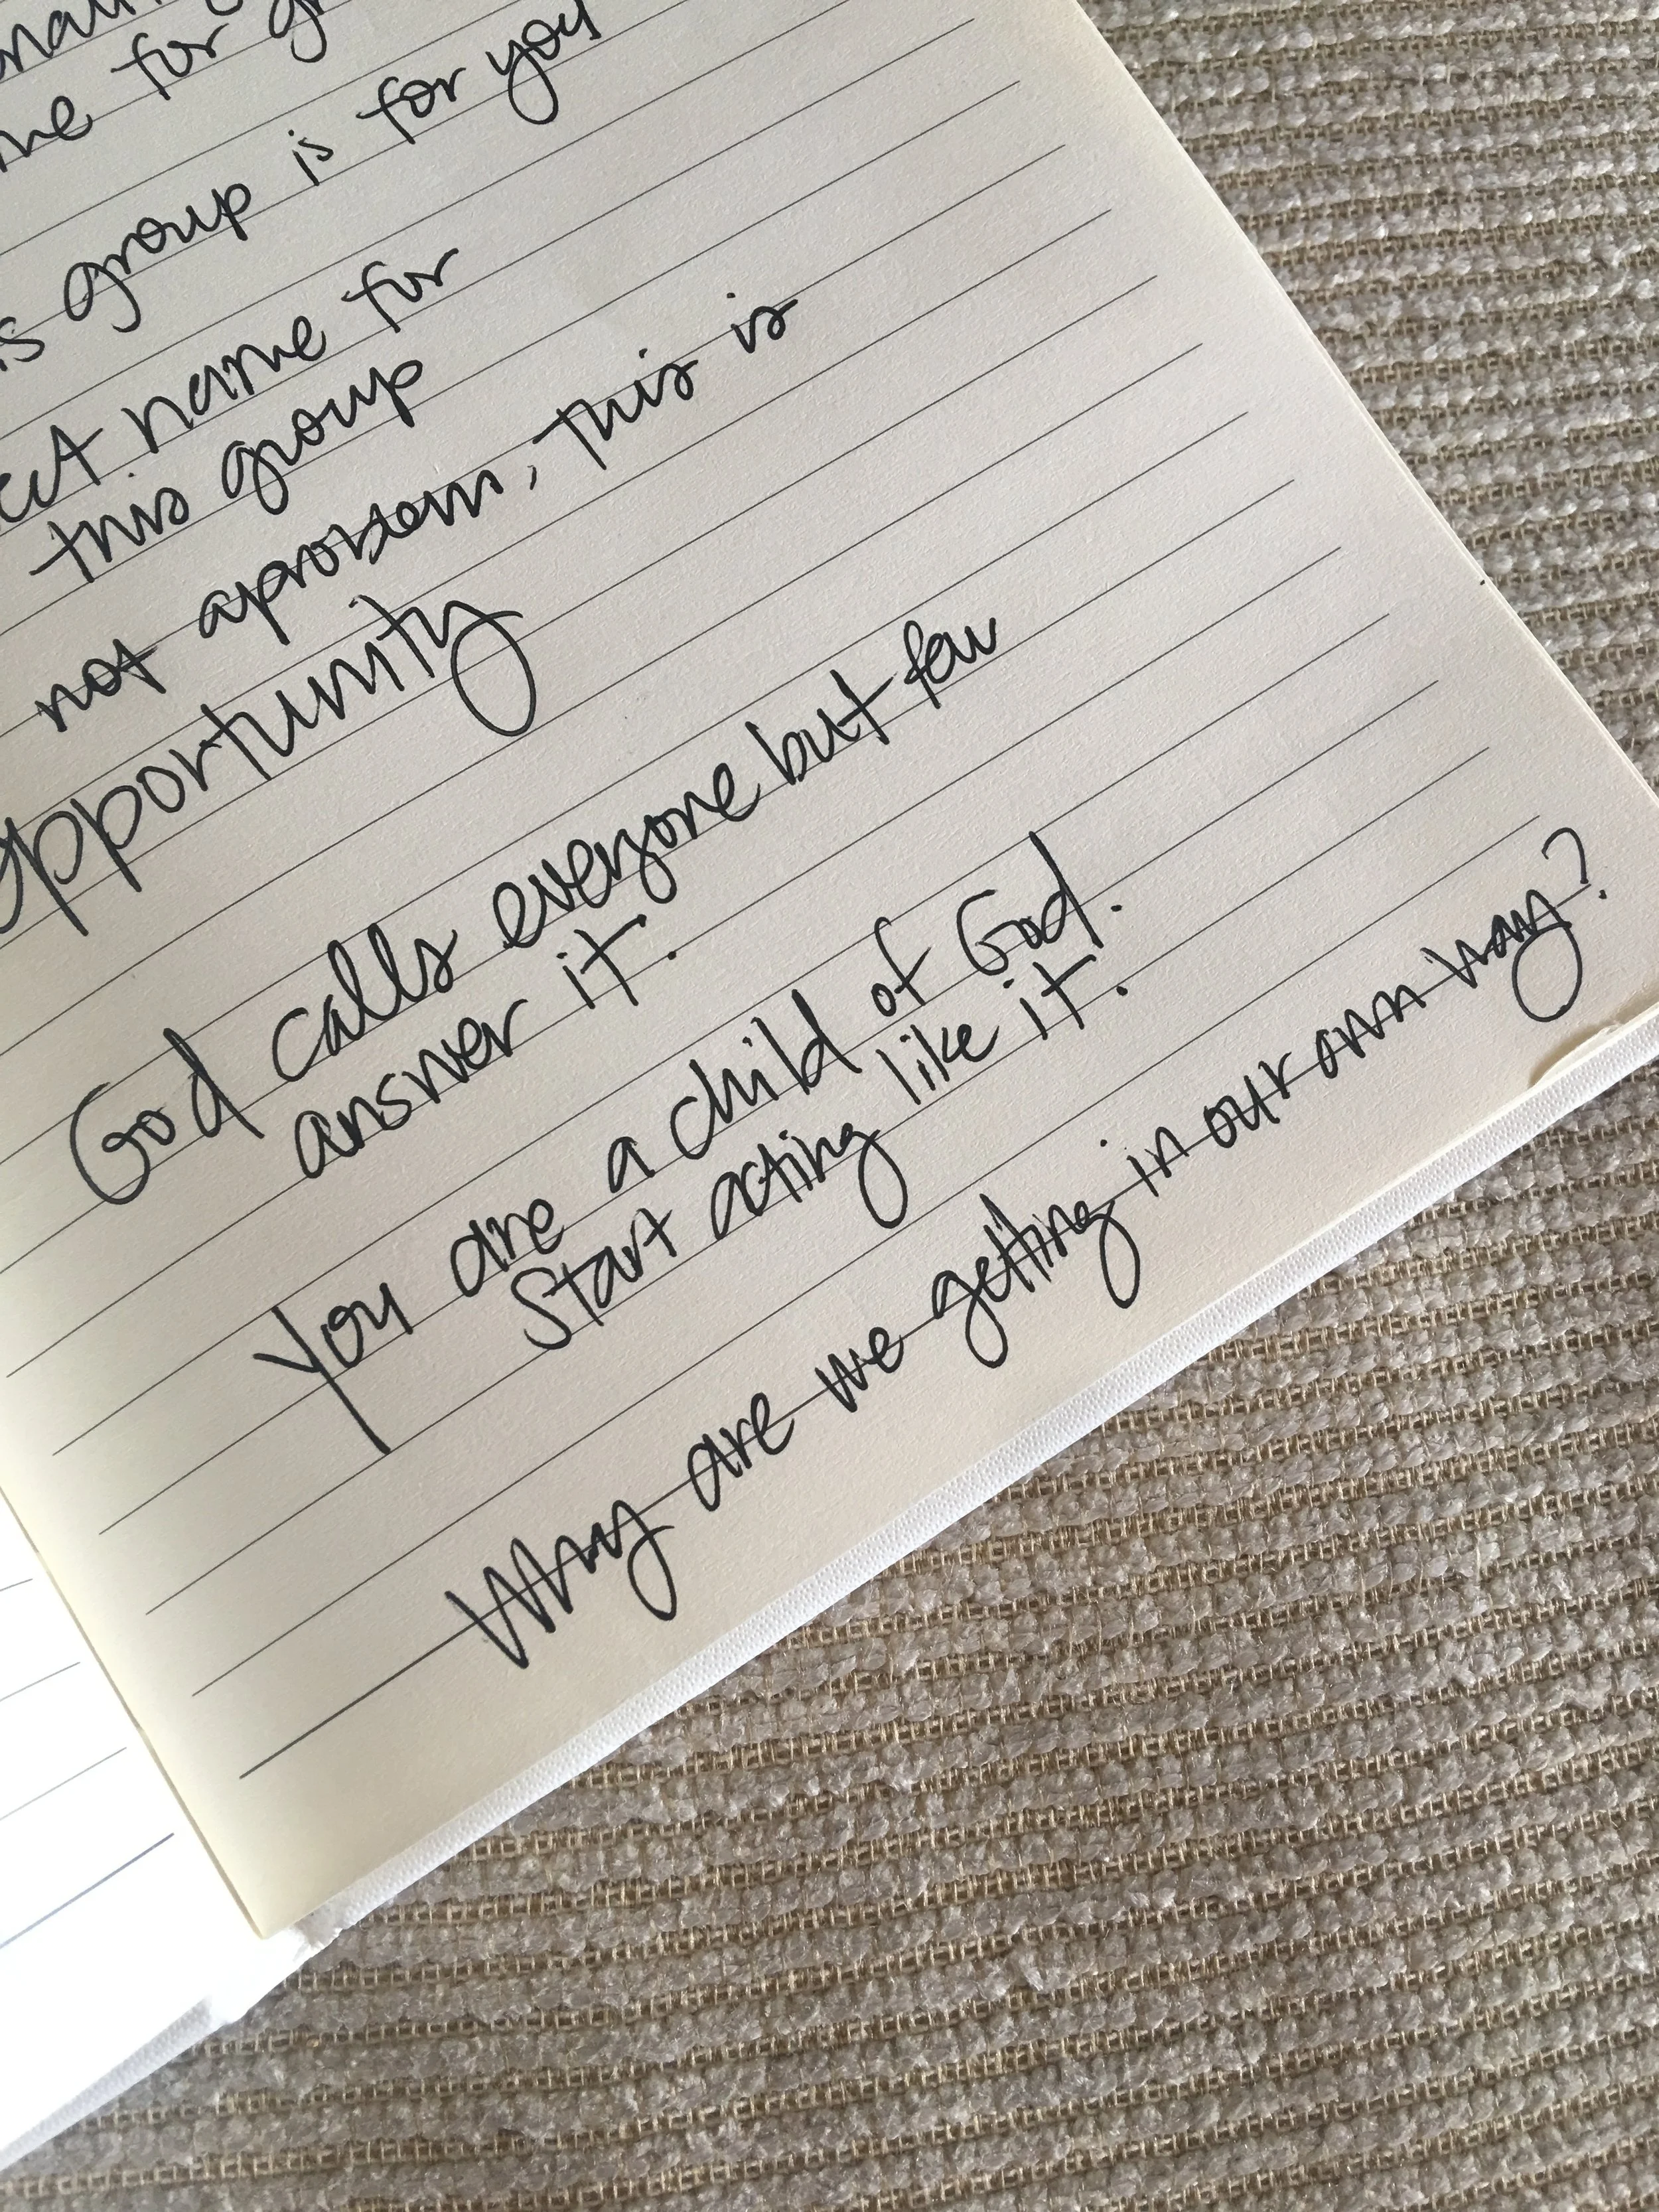 me for
s group is for you
name for
this group
not a problem, This is
opportunity
God calls everyone but few
answer it.
You are a child of God.
Start acting like it.
Why are we getting in our own way?